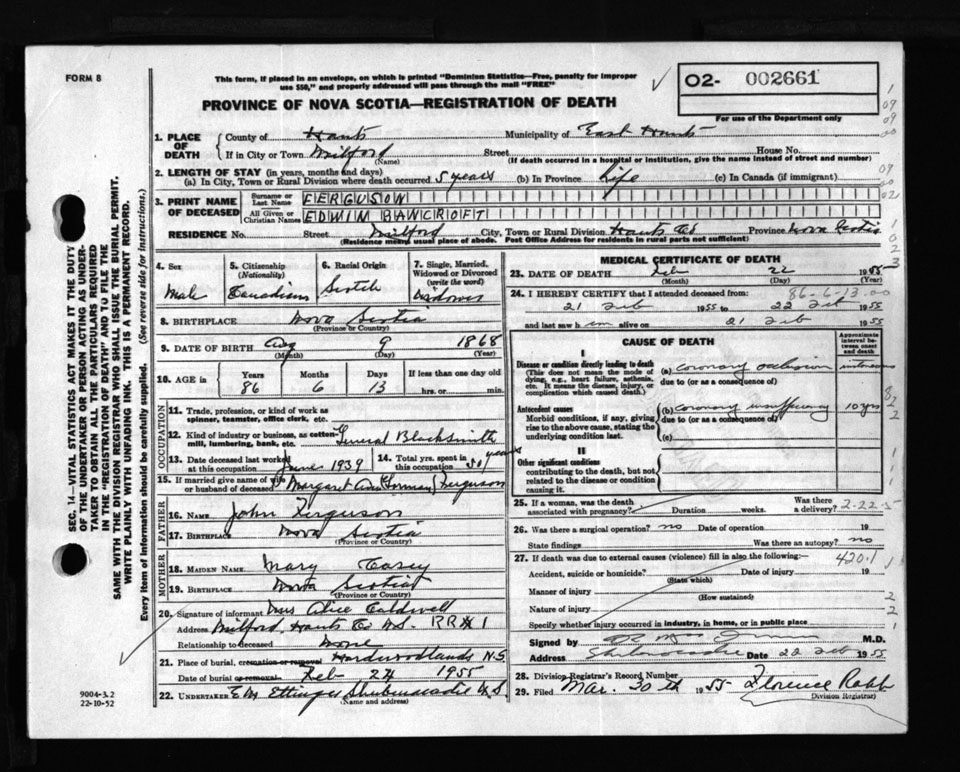 FORM 8
This form, if placed in an envelope, on which is printed "Dominion Statistics—Free, penalty for improper
use $50," and properly addressed will pass through the mail "FREE"
02- 002661
For use of the Department only
PROVINCE OF NOVA SCOTIA—REGISTRATION OF DEATH
1. PLACE OF DEATH
County of Hants Municipality of East Hants
If in City or Town Milford (Name) Street House No.
(If death occurred in a hospital or institution, give the name instead of street and number)
2. LENGTH OF STAY (in years, months and days)
(a) In City, Town or Rural Division where death occurred 5 years (b) In Province Life (c) In Canada (if immigrant)
3. PRINT NAME OF DECEASED
Surname or Last Name FERGUSON
All Given or Christian Names EDWIN BAWCROFT
RESIDENCE No. Street Milford City, Town or Rural Division Hants Co Province Nova Scotia
(Residence means usual place of abode. Post Office Address for residents in rural parts not sufficient)
4. Sex Male
5. Citizenship (Nationality) Canadian
6. Racial Origin Scotch
7. Single, Married, Widowed or Divorced (write the word) Widower
8. BIRTHPLACE Nova Scotia
(Province or Country)
9. DATE OF BIRTH Aug 9 1868
(Month) (Day) (Year)
10. AGE in Years 86 Months 6 Days 13 If less than one day old hrs. or min.
OCCUPATION
11. Trade, profession, or kind of work as spinner, teamster, office clerk, etc.
12. Kind of industry or business, as cotten-mill, lumbering, bank, etc. General Blacksmith
13. Date deceased last worked at this occupation June 1939 14. Total yrs. spent in this occupation 50 years
15. If married give name of wife or husband of deceased Margaret Ann Gorman Ferguson
FATHER
16. NAME John Ferguson
17. BIRTHPLACE Nova Scotia
(Province or Country)
MOTHER
18. MAIDEN NAME Mary Casey
19. BIRTHPLACE Nova Scotia
(Province or Country)
20. Signature of informant Mrs Alice Caldwell
Address Milford, Hants Co N.S. RR#1
Relationship to deceased None
21. Place of burial, cremation or removal Hardwoodlands N.S.
Date of burial or removal Feb 24 1955
22. UNDERTAKER E.W. Ettinger Shubenacadie N.S
(Name and address)
SEC. 14—VITAL STATISTICS ACT MAKES IT THE DUTY
OF THE UNDERTAKER OR PERSON ACTING AS UNDER-
TAKER TO OBTAIN ALL THE PARTICULARS REQUIRED
IN THE "REGISTRATION OF DEATH" AND TO FILE THE
SAME WITH THE DIVISION REGISTRAR WHO SHALL ISSUE THE BURIAL PERMIT.
WRITE PLAINLY WITH UNFADING INK. THIS IS A PERMANENT RECORD.
Every item of information should be carefully supplied. (See reverse side for instructions.)
9004-3.2
22-10-52
MEDICAL CERTIFICATE OF DEATH
23. DATE OF DEATH Feb 22 1955
(Month) (Day) (Year)
86-6-13-00
24. I HEREBY CERTIFY that I attended deceased from:
21 Feb 1955 to 22 Feb 1955
and last saw him alive on 21 Feb 1955
CAUSE OF DEATH
Approximate interval between onset and death
I
Disease or condition directly leading to death
(This does not mean the mode of dying, e.g., heart failure, asthenia, etc. It means the disease, injury, or complication which caused death.)
(a) Coronary occlusion
due to (or as a consequence of)
Antecedent causes
Morbid conditions, if any, giving rise to the above cause, stating the underlying condition last.
(b) Coronary insufficiency 10 yrs
due to (or as a consequence of)
(c)
II
Other significant conditions
contributing to the death, but not related to the disease or condition causing it.
25. If a woman, was the death associated with pregnancy? Duration weeks. Was there a delivery? 2-22-5
26. Was there a surgical operation? no Date of operation 19
State findings Was there an autopsy? no
27. If death was due to external causes (violence) fill in also the following:—
420.1
Accident, suicide or homicide? Date of injury 19
(State which)
Manner of injury
(How sustained)
Nature of injury
Specify whether injury occurred in industry, in home, or in public place
Signed by M.D.
Address Shubenacadie Date 22 Feb 1955
28. Division Registrar's Record Number
29. Filed Mar. 30th 1955 Florence Robb
Division Registrar